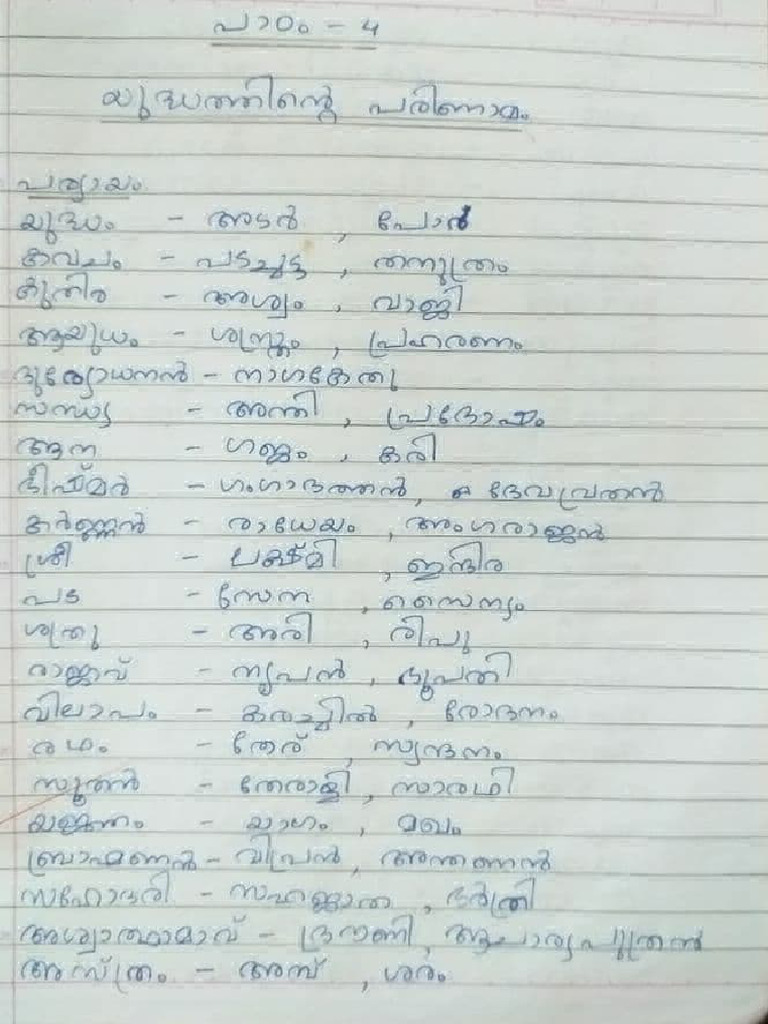 പാഠം - 4
യുദ്ധത്തിന്റെ പരിണാമം
പര്യായം
യുദ്ധം - അടർ , പോര്
കവചം - പടച്ചട്ട , തനുത്രം
കുതിര - അശ്വം , വാജി
ആയുധം - ശസ്ത്രം , പ്രഹരണം
ദുര്യോധനൻ - നാഗകേതു
സന്ധ്യ - അന്തി , പ്രദോഷം
ആന - ഗജം , കരി
ഭീഷ്മർ - ഗംഗാദത്തൻ, ദേവവ്രതൻ
കർണ്ണൻ - രാധേയം , അംഗരാജൻ
ശ്രീ - ലക്ഷ്മി , ഇന്ദിര
പട - സേന , സൈന്യം
ശത്രു - അരി , രിപു
രാജാവ് - നൃപൻ , ഭൂപതി
വിലാപം - കരച്ചിൽ , രോദനം
രഥം - തേര് , സ്യന്ദനം
സൂതൻ - തേരാളി , സാരഥി
യജ്ഞം - യാഗം , മഖം
ബ്രാഹ്മണൻ - വിപ്രൻ , അന്തണൻ
സഹോദരി - സഹജാത , ഭർത്രി
അശ്വാത്ഥാമാവ് - ദ്രൗണി , ആചാര്യപുത്രൻ
അസ്ത്രം - അമ്പ് , ശരം